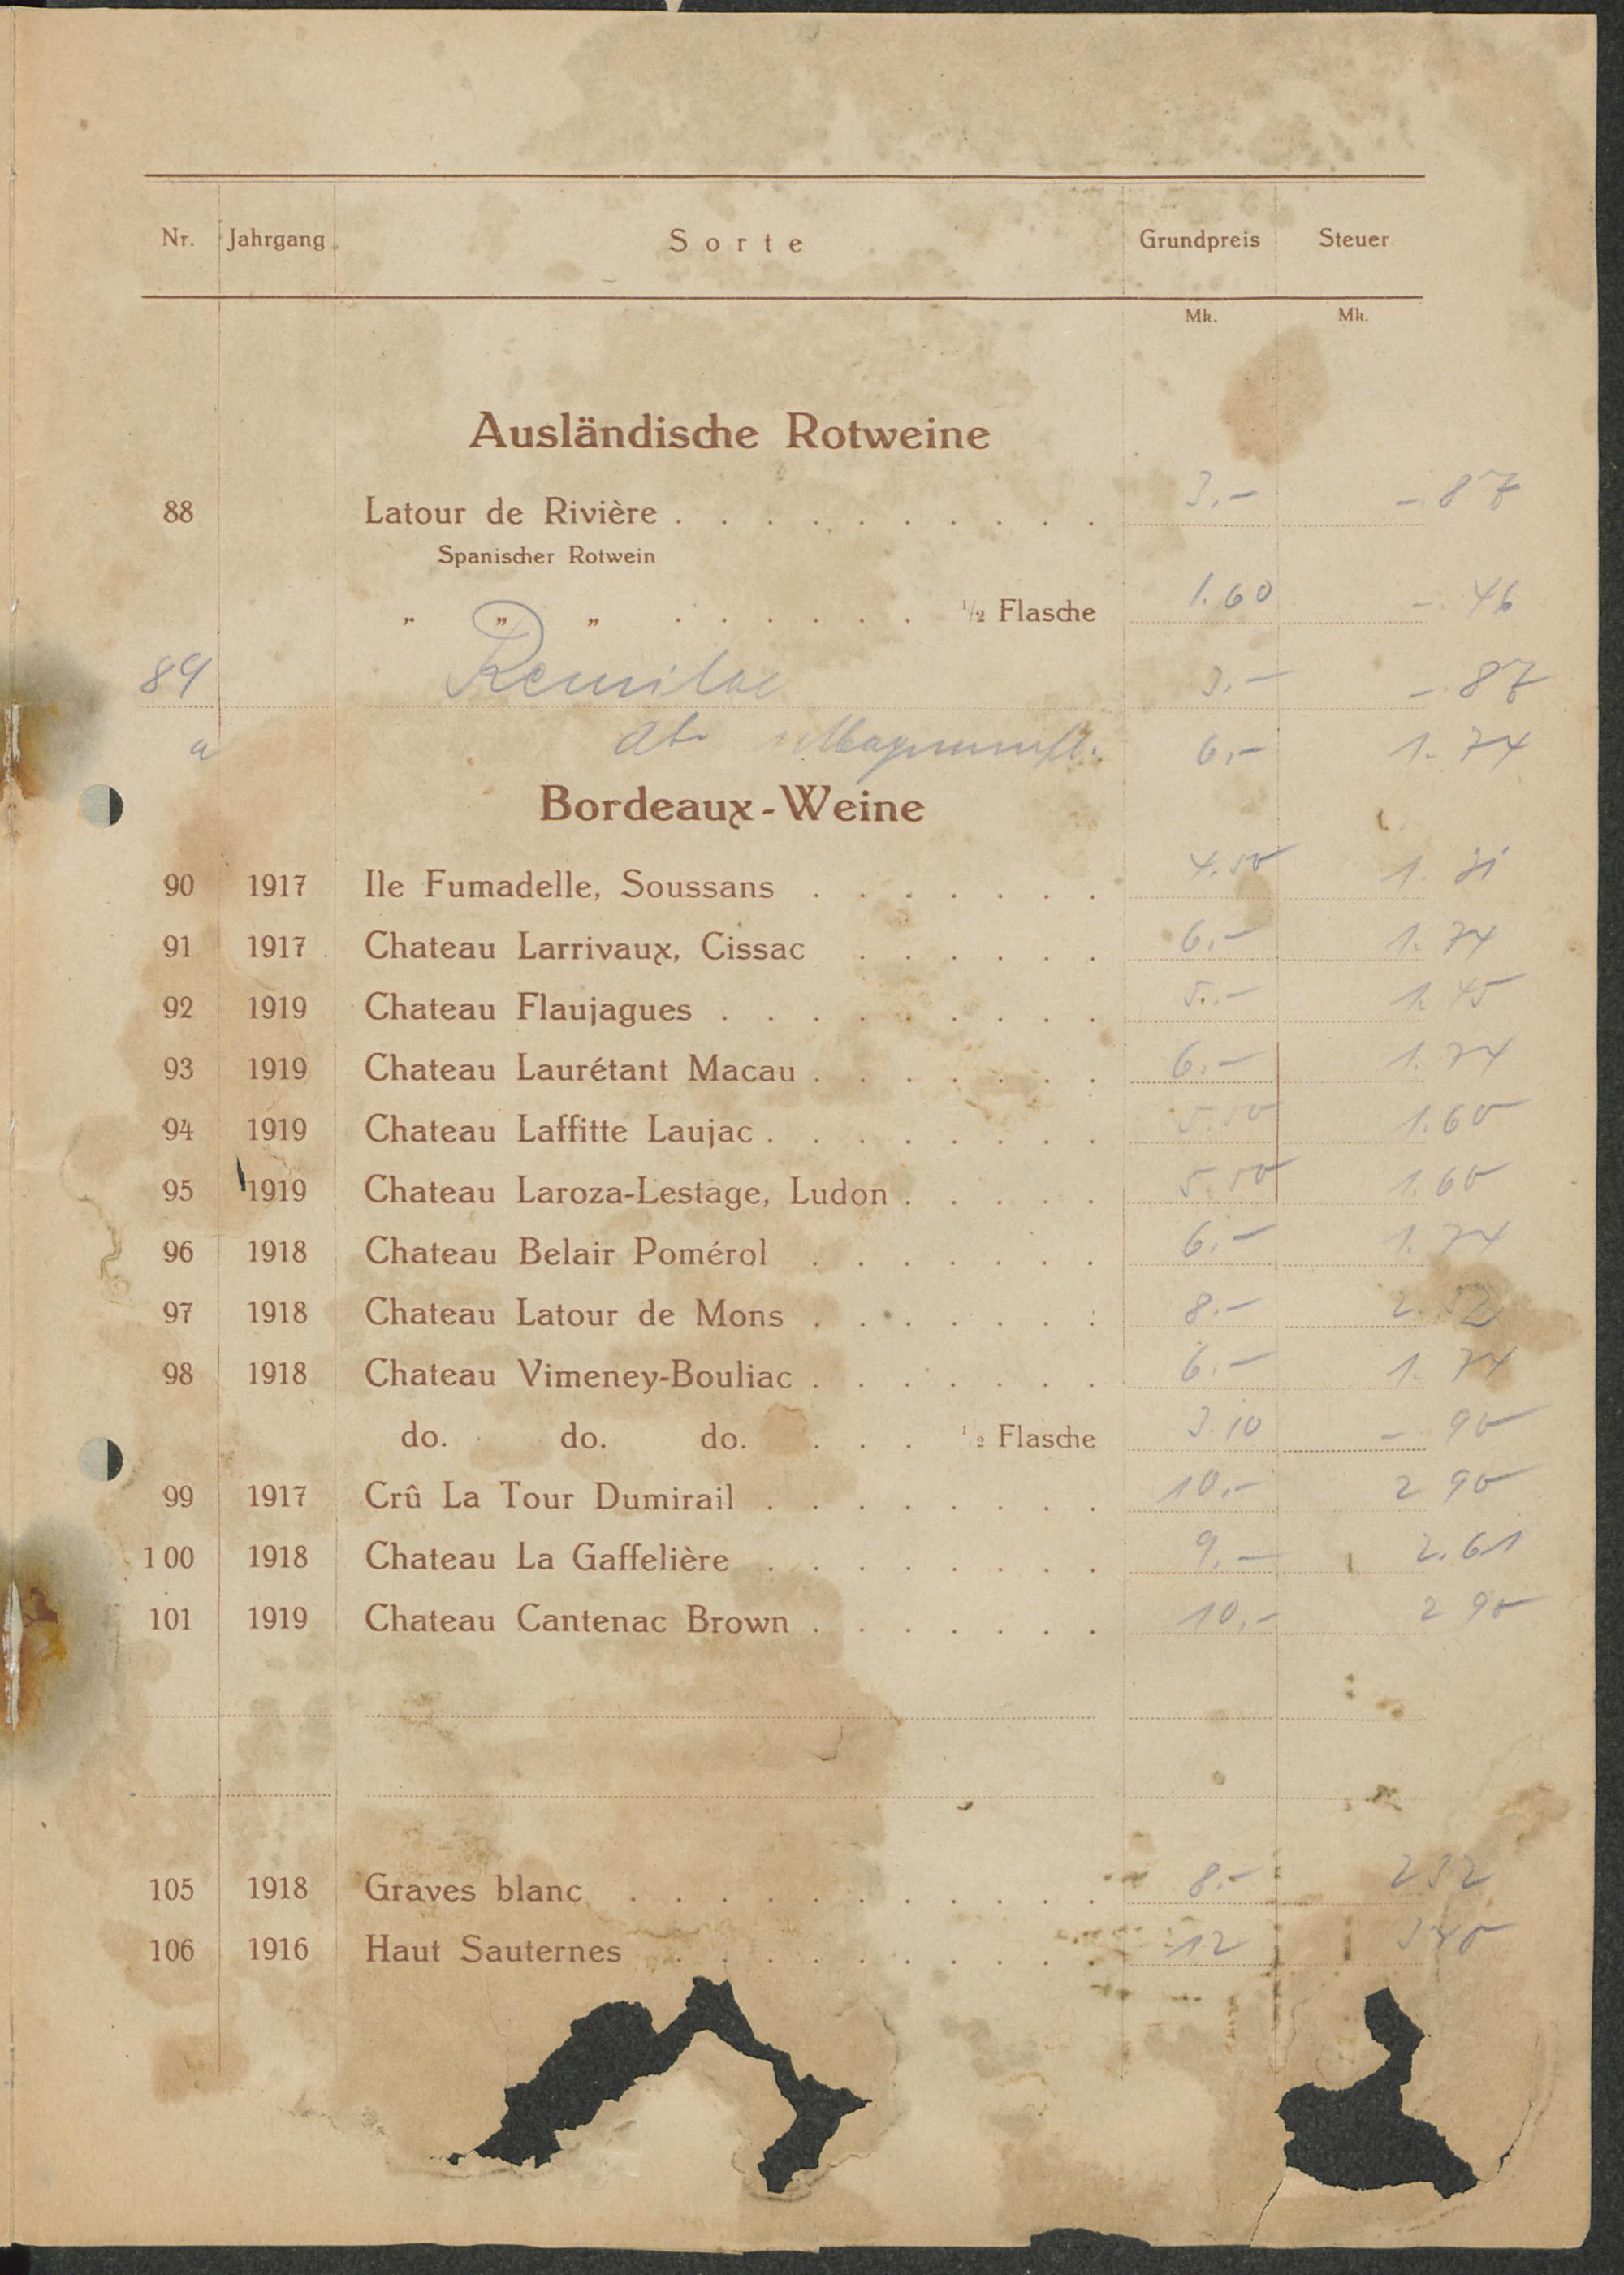 Nr. Jahrgang Sorte Grundpreis Steuer
Mk. Mk.
Ausländische Rotweine
88 Latour de Rivière . . . . . . . . . . 3.– –.87
Spanischer Rotwein
„ „ „ . . . . . . 1/2 Flasche 1.60 –.46
89 3.– –.87
a Magnumfl. 6.– 1.74
Bordeaux-Weine
90 1917 Ile Fumadelle, Soussans . . . . . . . 4.50 1.31
91 1917 Chateau Larrivaux, Cissac . . . . . . 6.– 1.74
92 1919 Chateau Flaujagues . . . . . . . . . 5.– 1.45
93 1919 Chateau Laurétant Macau . . . . . . . 6.– 1.74
94 1919 Chateau Laffitte Laujac . . . . . . . . 5.50 1.60
95 1919 Chateau Laroza-Lestage, Ludon . . . . . 5.50 1.60
96 1918 Chateau Belair Pomérol . . . . . . . 6.– 1.74
97 1918 Chateau Latour de Mons . . . . . . . 8.– 2.32
98 1918 Chateau Vimeney-Bouliac . . . . . . . 6.– 1.74
do. do. do. . . . 1/2 Flasche 3.10 –.90
99 1917 Crû La Tour Dumirail . . . . . . . . 10.– 2.90
100 1918 Chateau La Gaffelière . . . . . . . . 9.– 2.61
101 1919 Chateau Cantenac Brown . . . . . . . 10.– 2 90
105 1918 Graves blanc . . . . . . . . . . . 8.– 2 32
106 1916 Haut Sauternes . . . . . . . . . . 12 3 48